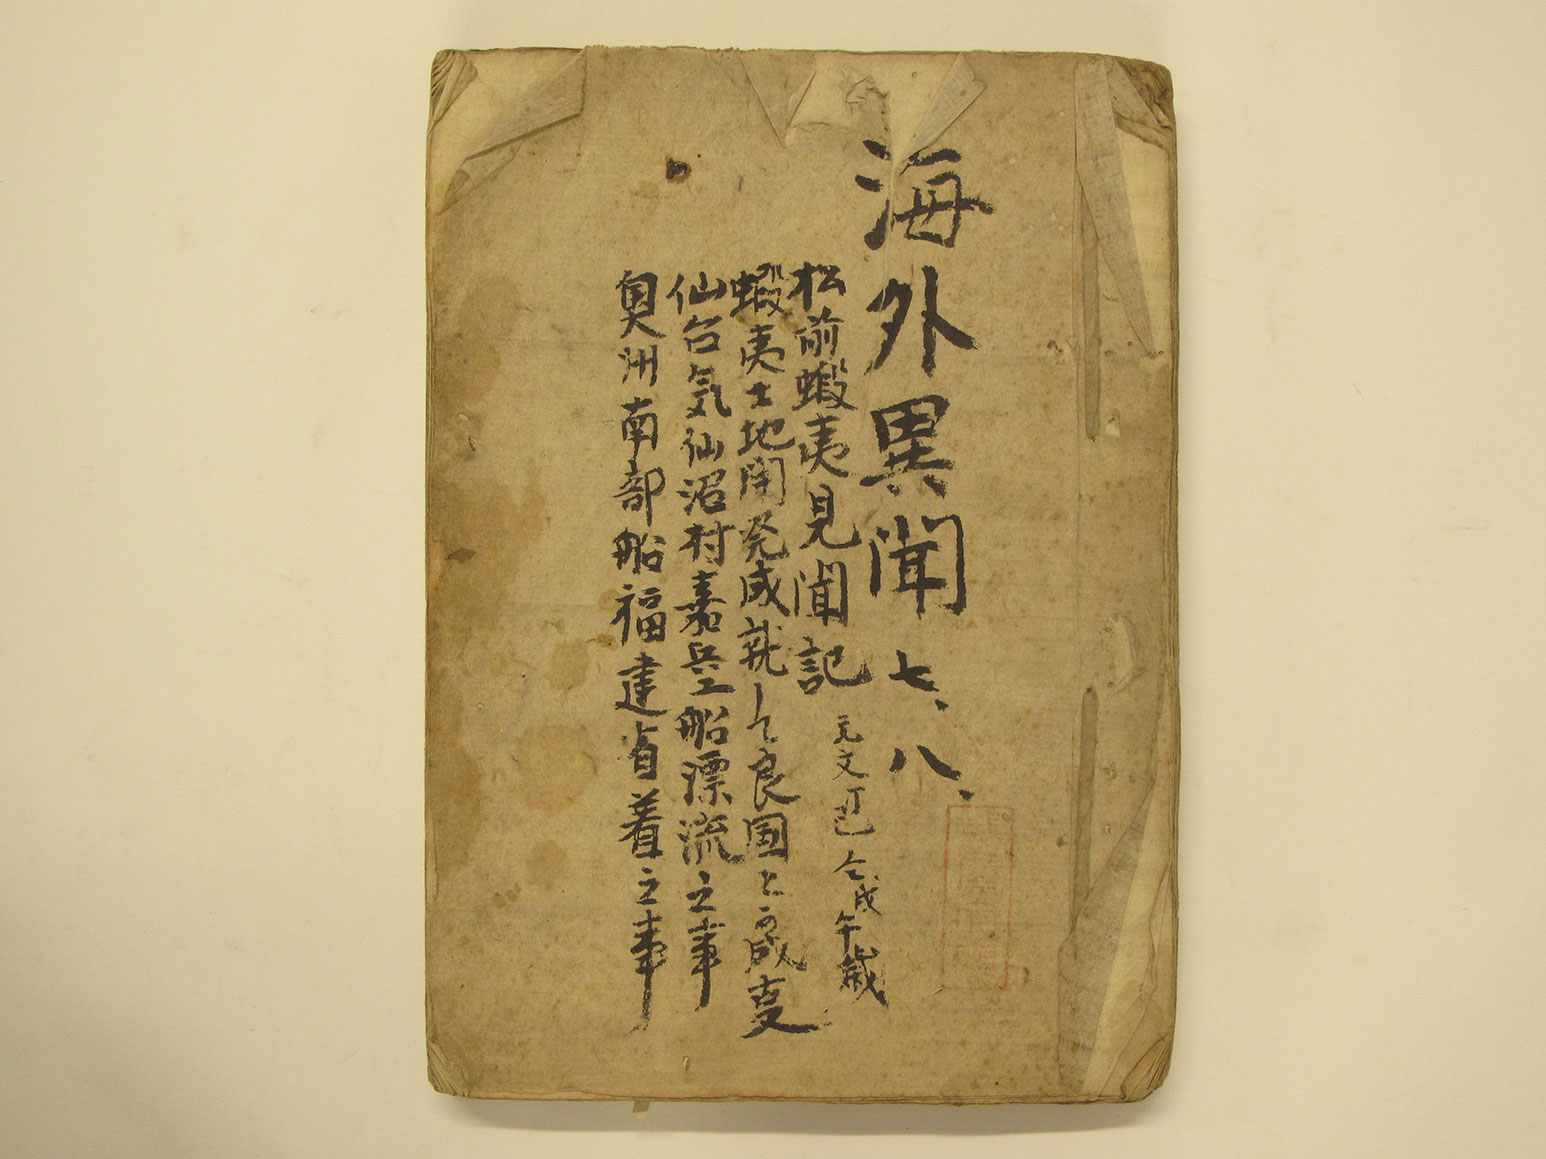 海外異聞 七、八、
松前蝦夷見聞記 元文丁巳 仝戊午歳
蝦夷土地開発成就して良国と可成叓
仙台気仙沼村嘉兵衛船漂流之事
奥洲南部船福建省着之事